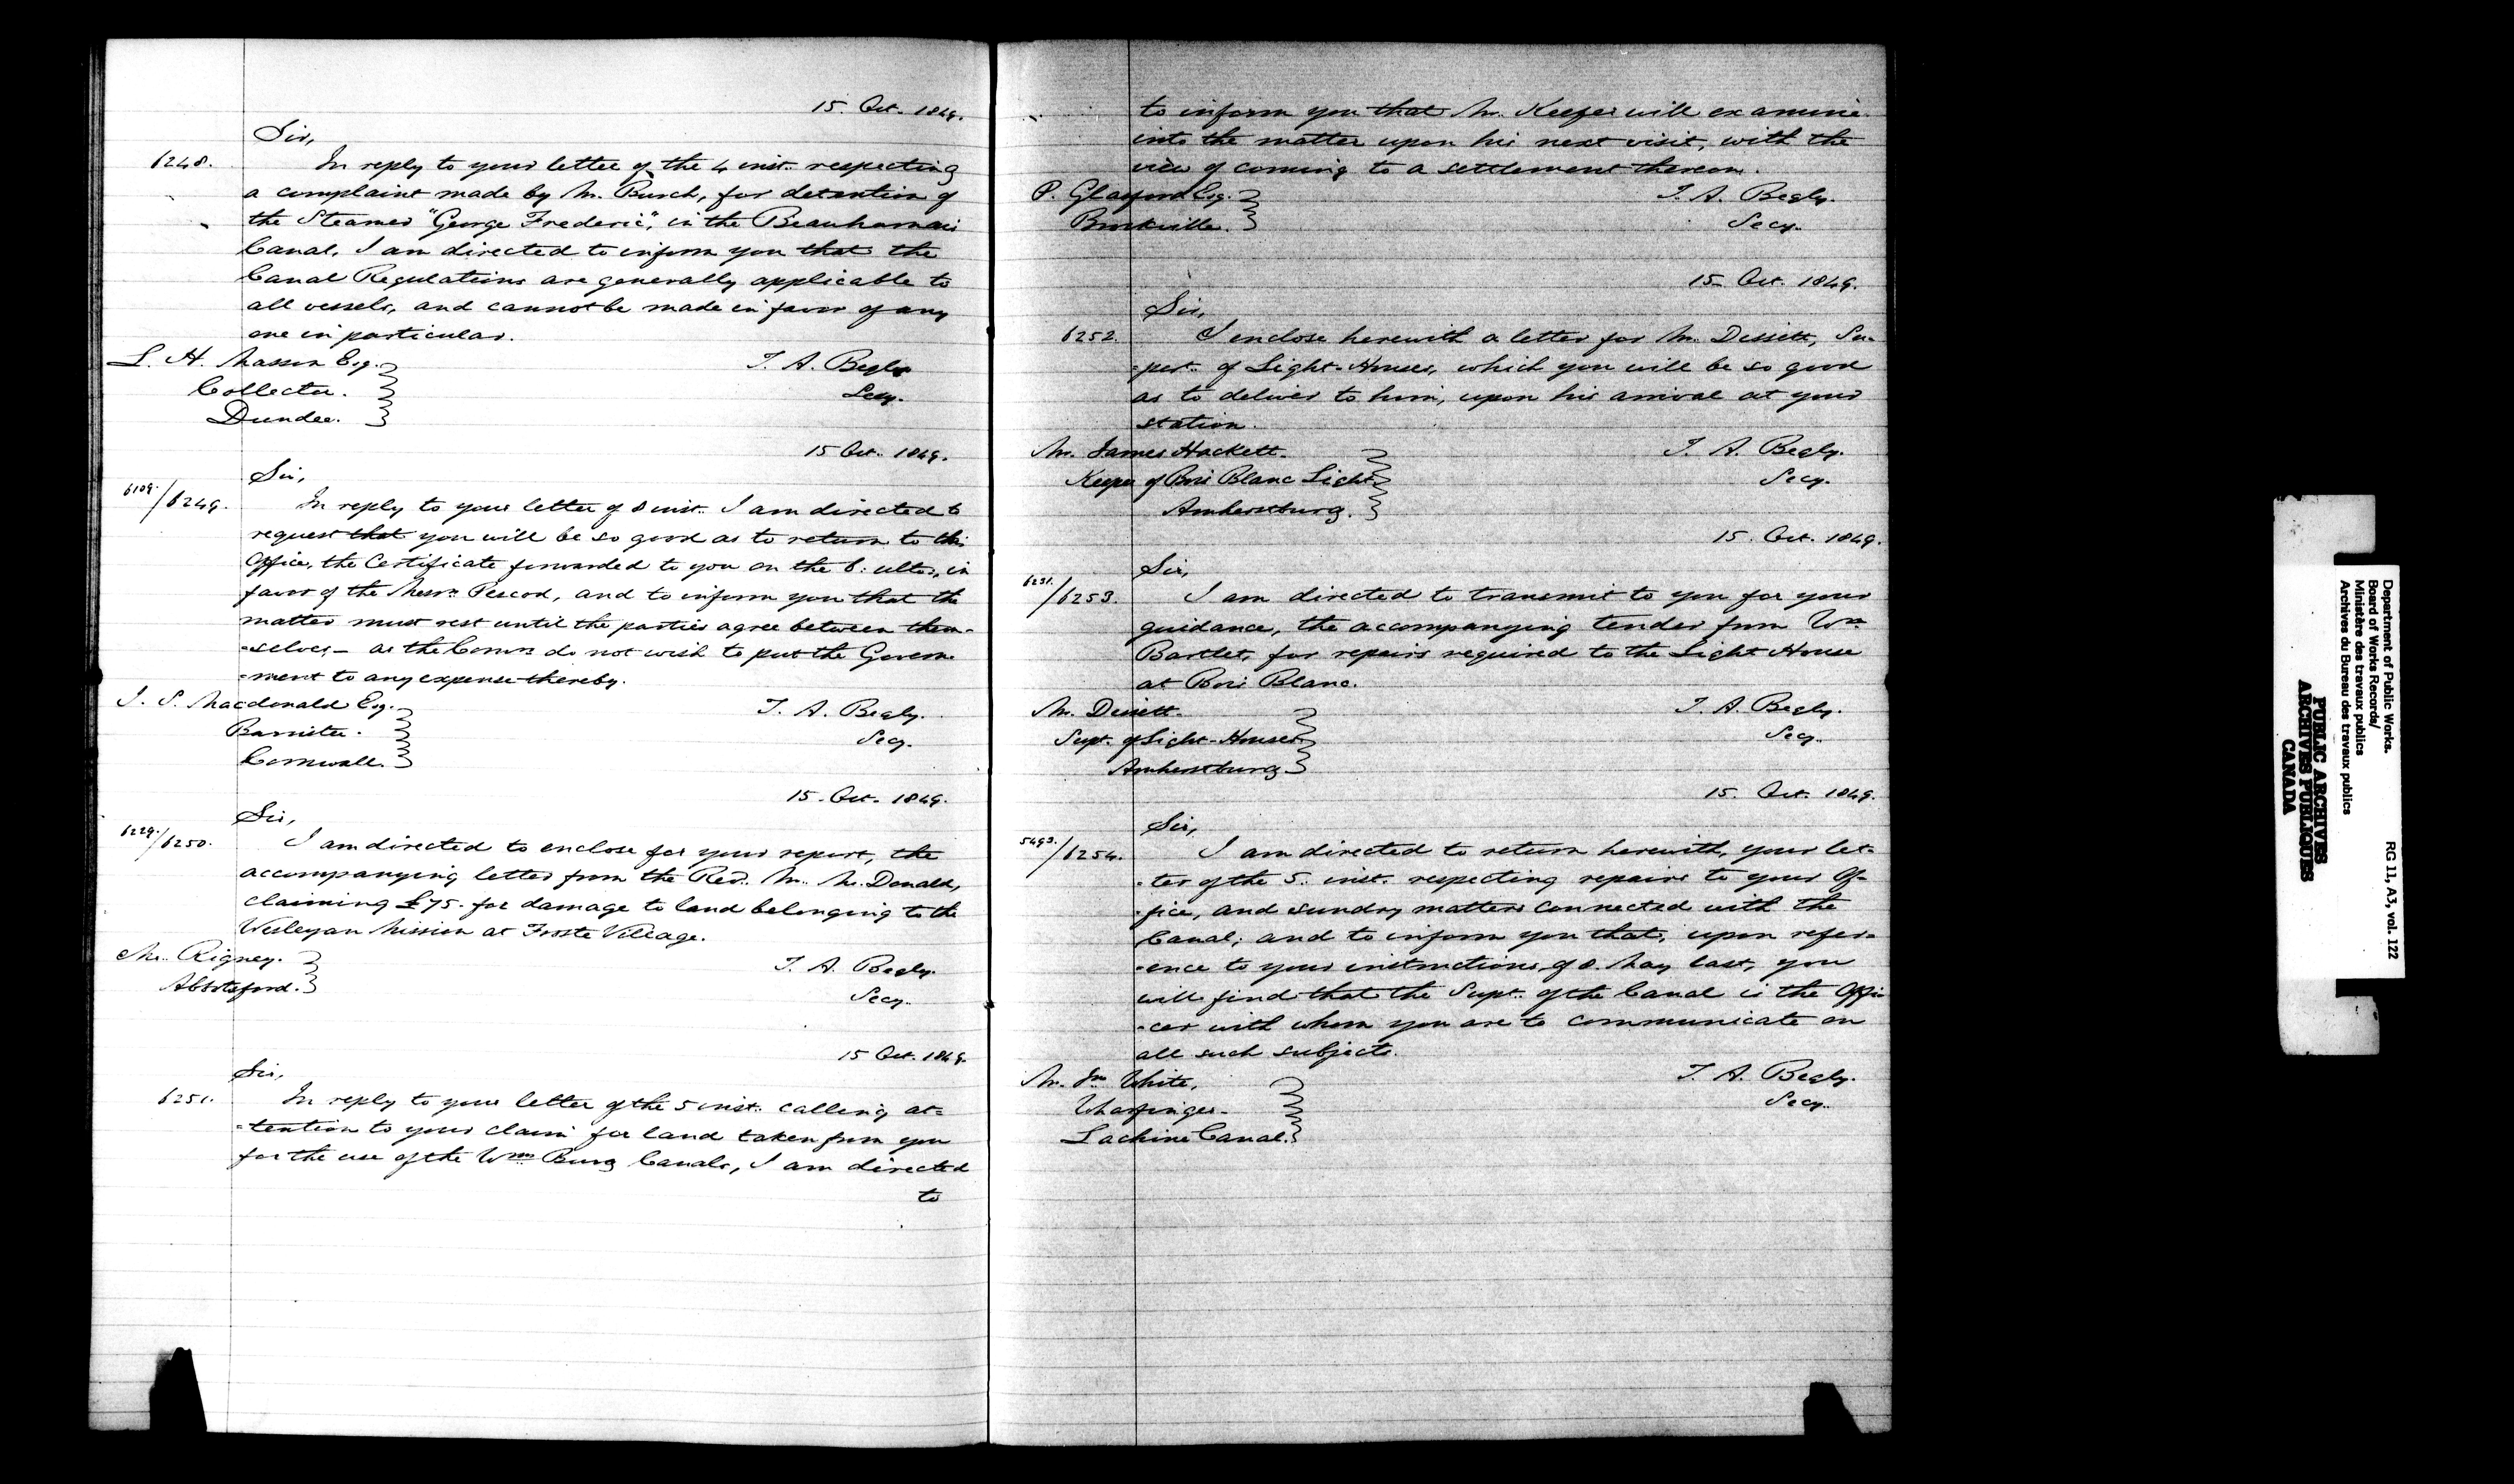 15. Oct. 1849.
Sir,
6248.
In reply to your letter of the 4 inst. respecting
a complaint made by Mr. Burch, for detention of
the Steamer "George Frederic", in the Beauharnois
Canal, I am directed to inform you that the
Canal Regulations are generally applicable to
all vessels, and cannot be made in favor of any
one in particular.
L. H. Masson Esq.
Collector.
Dundee.
T. A. Begly
Secy.
15 Oct. 1849.
Sir,
6109./6249.
In reply to your letter of 8 inst. I am directed to
request that you will be so good as to return to this
Office, the Certificate forwarded to you on the 6. ulto., in
favor of the Messrs. Pescod, and to inform you that the
matter must rest until the parties agree between them-
-selves - as the Comrs do not wish to put the Govern-
-ment to any expense thereby.
J. S. Macdonald Esq.
Barrister.
Cornwall.
T. A. Begly.
Secy.
15. Oct. 1849.
Sir,
6229./6250.
I am directed to enclose for your report, the
accompanying letter from the Revd. Mr. McDonald,
claiming £75. for damage to land belonging to the
Wesleyan Mission at Frosts Village.
Mr. Rigney.
Abbotsford.
T. A. Begly.
Secy.
15 Oct. 1849.
Sir,
6251.
In reply to your letter of the 5 inst. calling at-
-tention to your claim for land taken from you
for the use of the Wmsburg Canals, I am directed
to
to inform you that Mr. Keefer will examine
into the matter upon his next visit, with the
view of coming to a settlement thereon.
P. Glasford Esq.
Brockville.
T. A. Begly.
Secy.
15 Oct. 1849.
Sir,
6252.
I enclose herewith a letter for Mr. Dissett, Su-
-pert. of Light-Houses, which you will be so good
as to deliver to him, upon his arrival at your
station.
Mr. James Hackett.
Keeper of Bois Blanc Light
Amherstburg.
T. A. Begly.
Secy.
15. Oct. 1849.
Sir,
6231./6253.
I am directed to transmit to you for your
guidance, the accompanying tender from Wm
Bartlet, for repairs required to the Light House
at Bois Blanc.
Mr. Dissett.
Supt. of Light-Houses
Amherstburg
T. A. Begly.
Secy.
15. Oct. 1849.
Sir,
5493./6254.
I am directed to return herewith, your let-
-ter of the 5. inst. respecting repairs to your Of-
-fice, and sundry matters connected with the
Canal; and to inform you that, upon refer-
-ence to your instructions, of 8. May last, you
will find that the Supt. of the Canal is the Offi-
-cer with whom you are to communicate on
all such subjects.
Mr. Jno White,
Wharfinger.
Lachine Canal.
T. A. Begly.
Secy.
Department of Public Works.
Board of Works Records/
Ministère des travaux publics
Archives du Bureau des travaux publics
RG 11, A3, vol. 122
PUBLIC ARCHIVES
ARCHIVES PUBLIQUES
CANADA